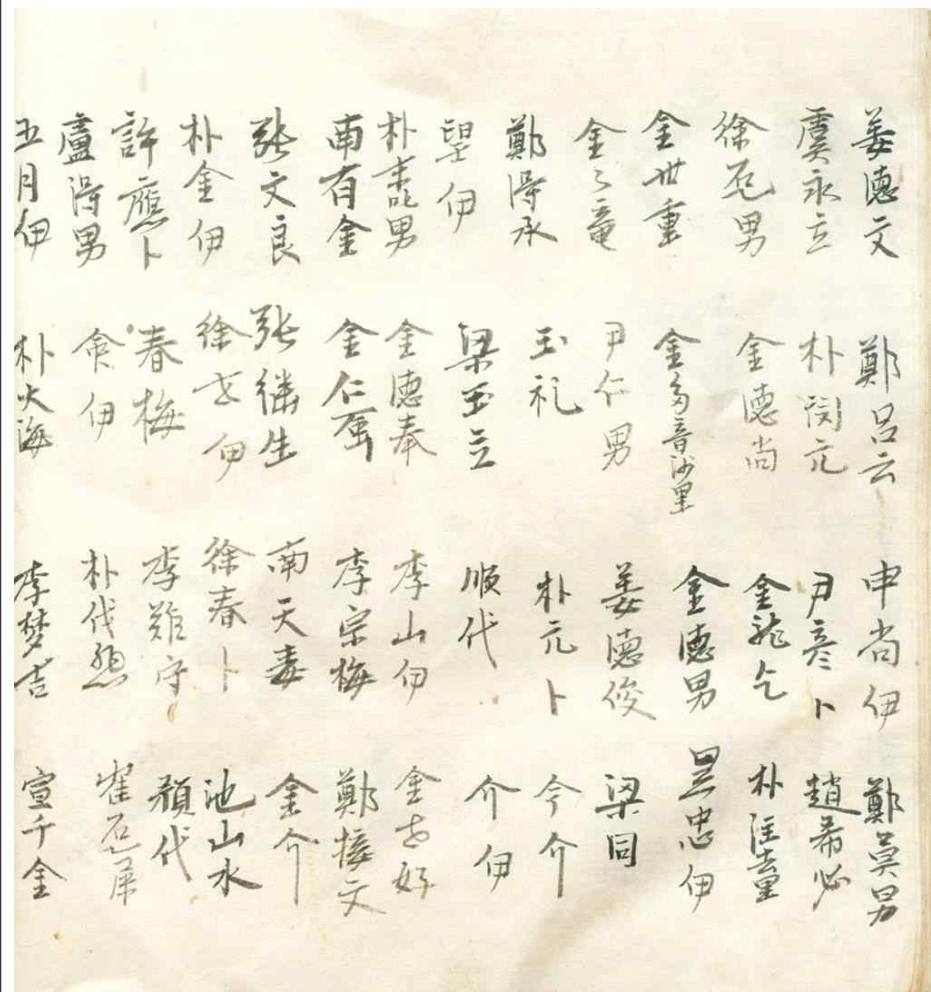 姜德文 鄭呂云 申尚伊 鄭莫男
虞永立 朴閔元 尹彦卜 趙希必
徐石男 金德尚 金龍乞 朴
金世重 金多音沙里 金德男 忠伊
金〻竜 尹仁男 姜德俊 梁同
鄭得永 玉礼 朴元卜 今介
望伊 梁玉立 順代 介伊
朴男 金德奉 李山伊 金好
南有金 金仁 李宗梅 鄭接文
張文良 張繼生 南天毒 金介
朴金伊 徐伊 徐春卜 池山水
許應卜 春梅 李難守 顔代
盧得男 伊 朴代 崔石
五月伊 朴大海 李梦吉 宣千金